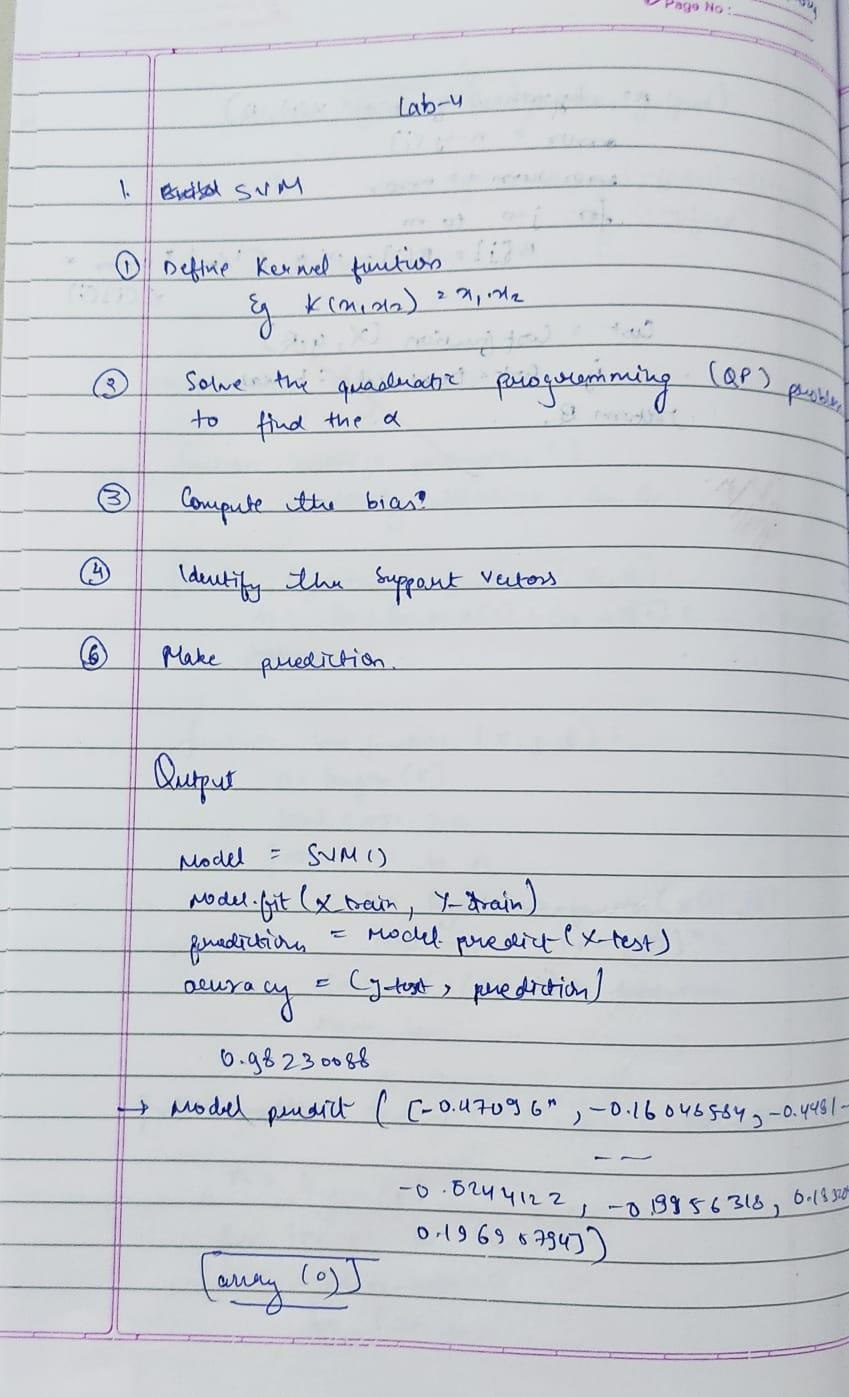 Page No :
Lab-4
1. SVM
① Define Kernel function
Eg K(x1, x2) = x1.x2
② Solve the quadratic programming (QP) problem
to find the α
③ Compute the bias?
④ Identify the Support Vectors
⑥ Make prediction.
Output
Model = SVM()
Model.fit (X train, Y-train)
prediction = Model. predict (X-test)
accuracy = (y-test, prediction)
0.98230088
→ Model predict ( [-0.47096", -0.16046584, -0.4481-
-0.5244122, -0.9956318,
0.19695794])
[array (0)]